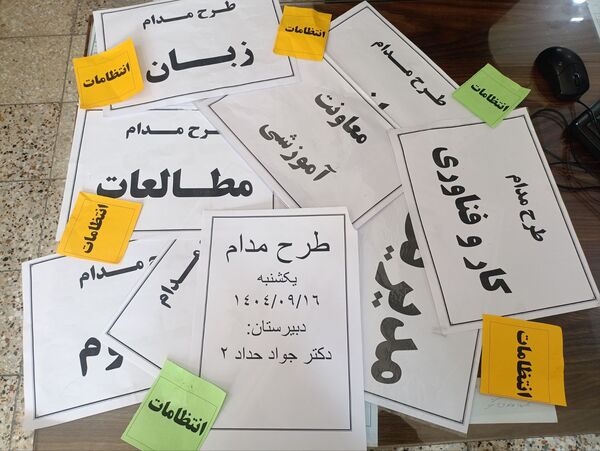 طرح مدام
زبان
انتظامات
انتظامات
طرح مدام
انتظامات
معاونت
آموزشی
طرح مدام
مطالعات
طرح مدام
کار و فناوری
انتظامات
طرح مدام
طرح مدام
یکشنبه
۱۴۰۴/۰۹/۱۶
دبیرستان:
دکتر جواد حداد ۲
انتظامات
انتظامات